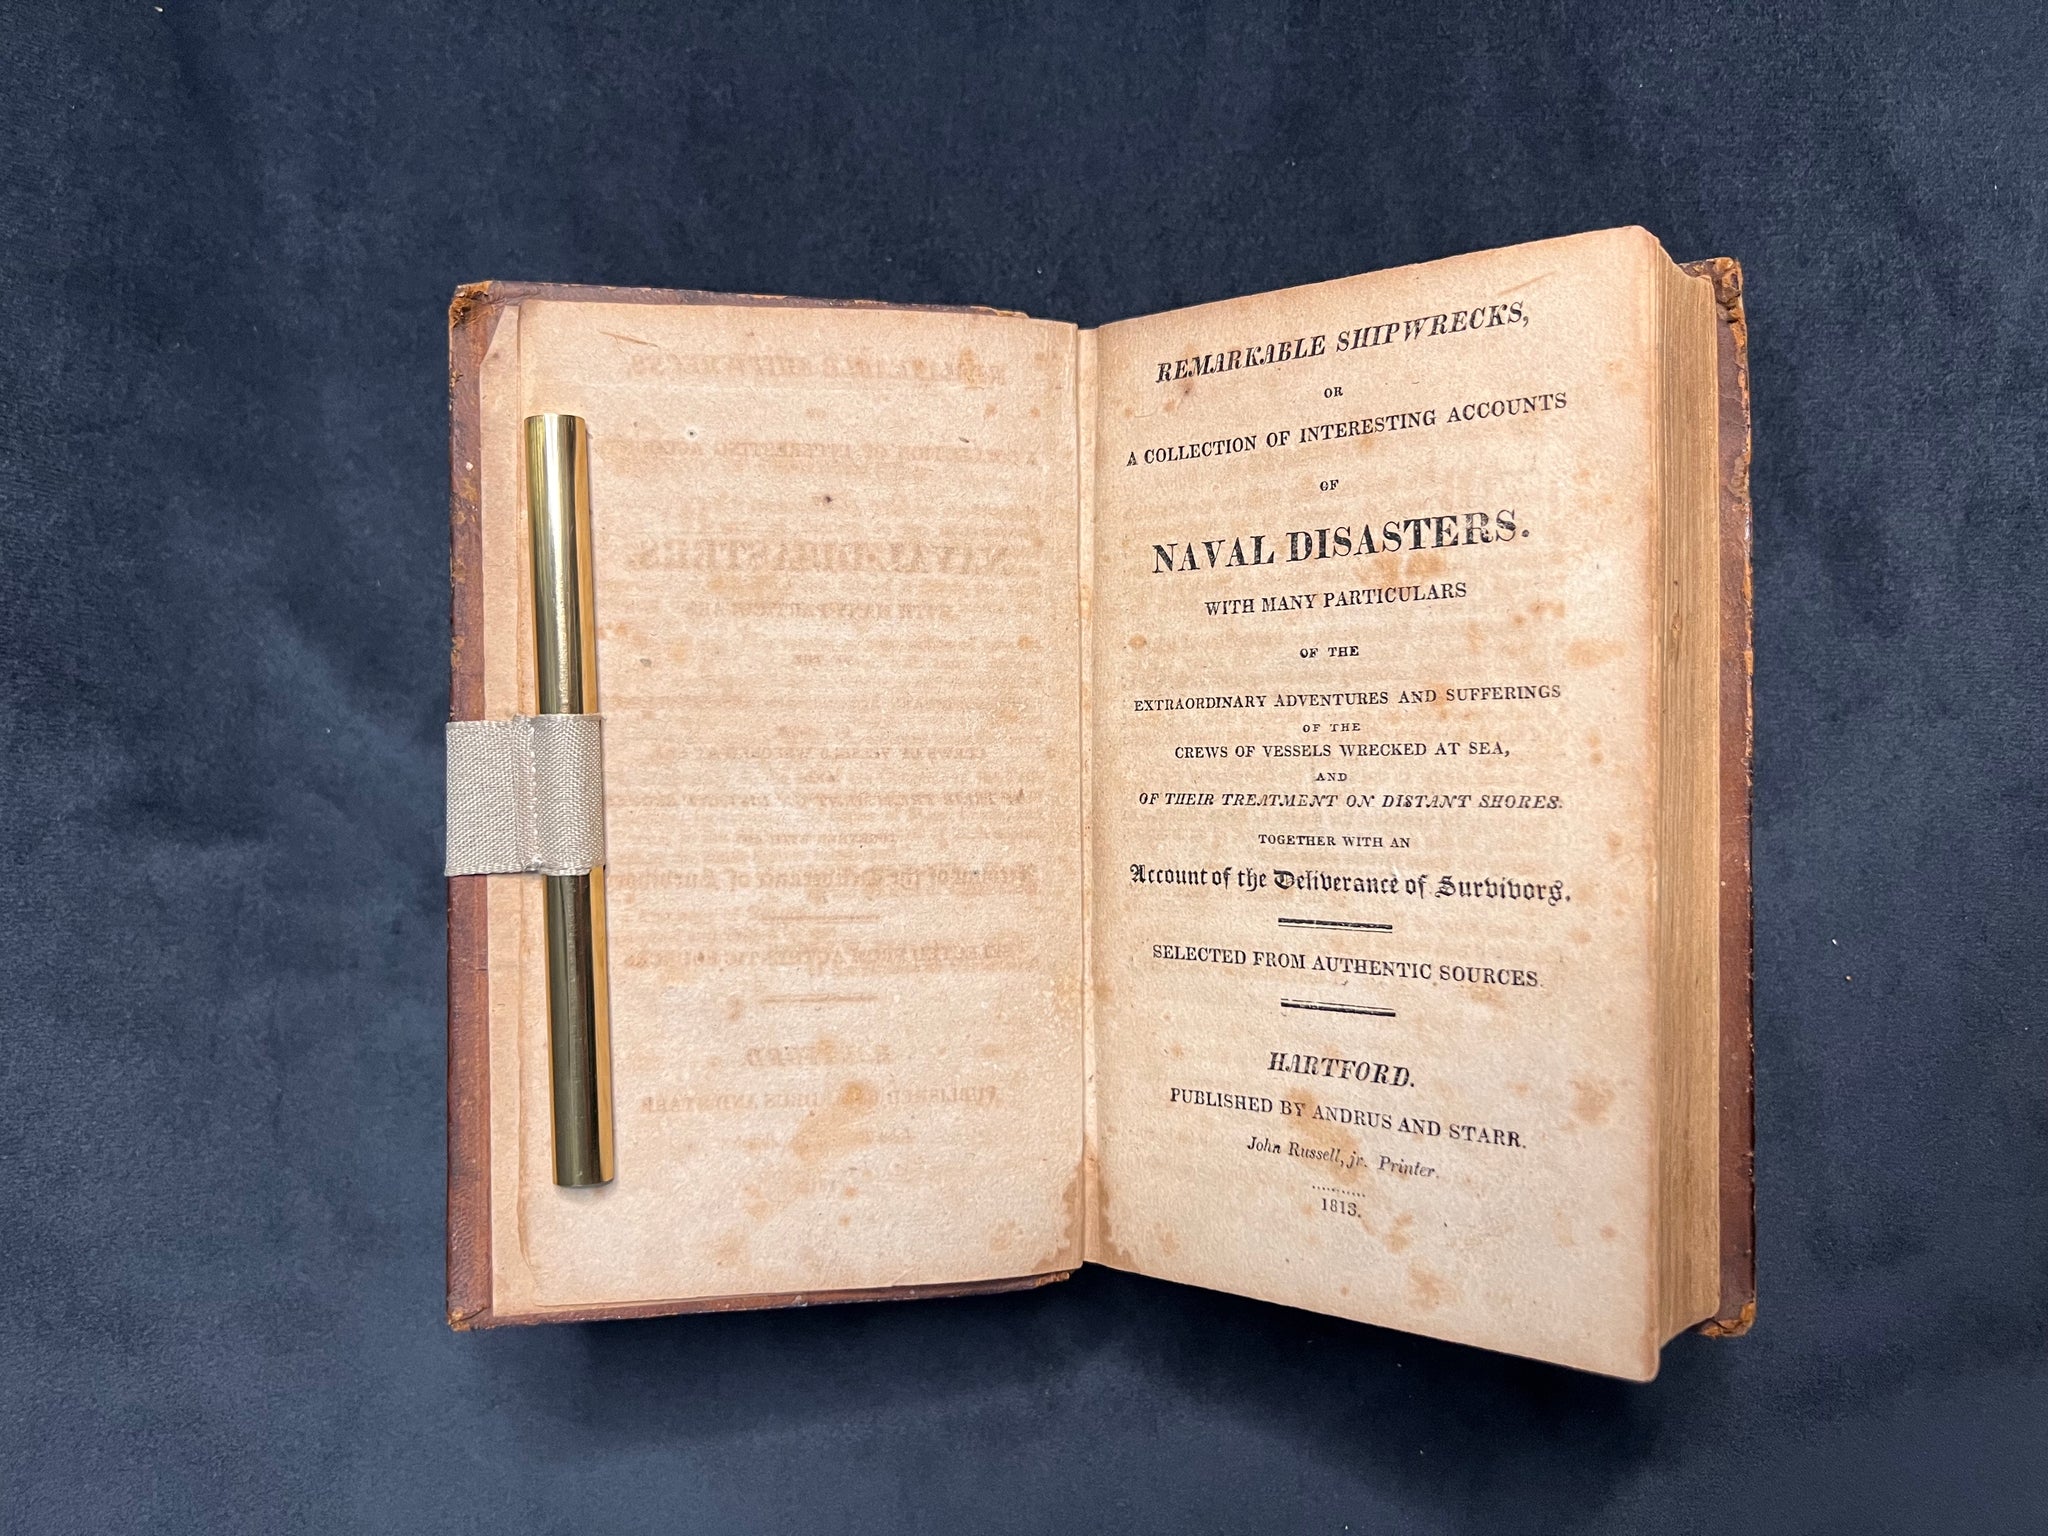 REMARKABLE SHIPWRECKS,
OR
A COLLECTION OF INTERESTING ACCOUNTS
OF
NAVAL DISASTERS.
WITH MANY PARTICULARS
OF THE
EXTRAORDINARY ADVENTURES AND SUFFERINGS
OF THE
CREWS OF VESSELS WRECKED AT SEA,
AND
OF THEIR TREATMENT ON DISTANT SHORES:
TOGETHER WITH AN
Account of the Deliverance of Survivors.
SELECTED FROM AUTHENTIC SOURCES.
HARTFORD.
PUBLISHED BY ANDRUS AND STARR.
John Russell, jr. Printer.
..........
1813.